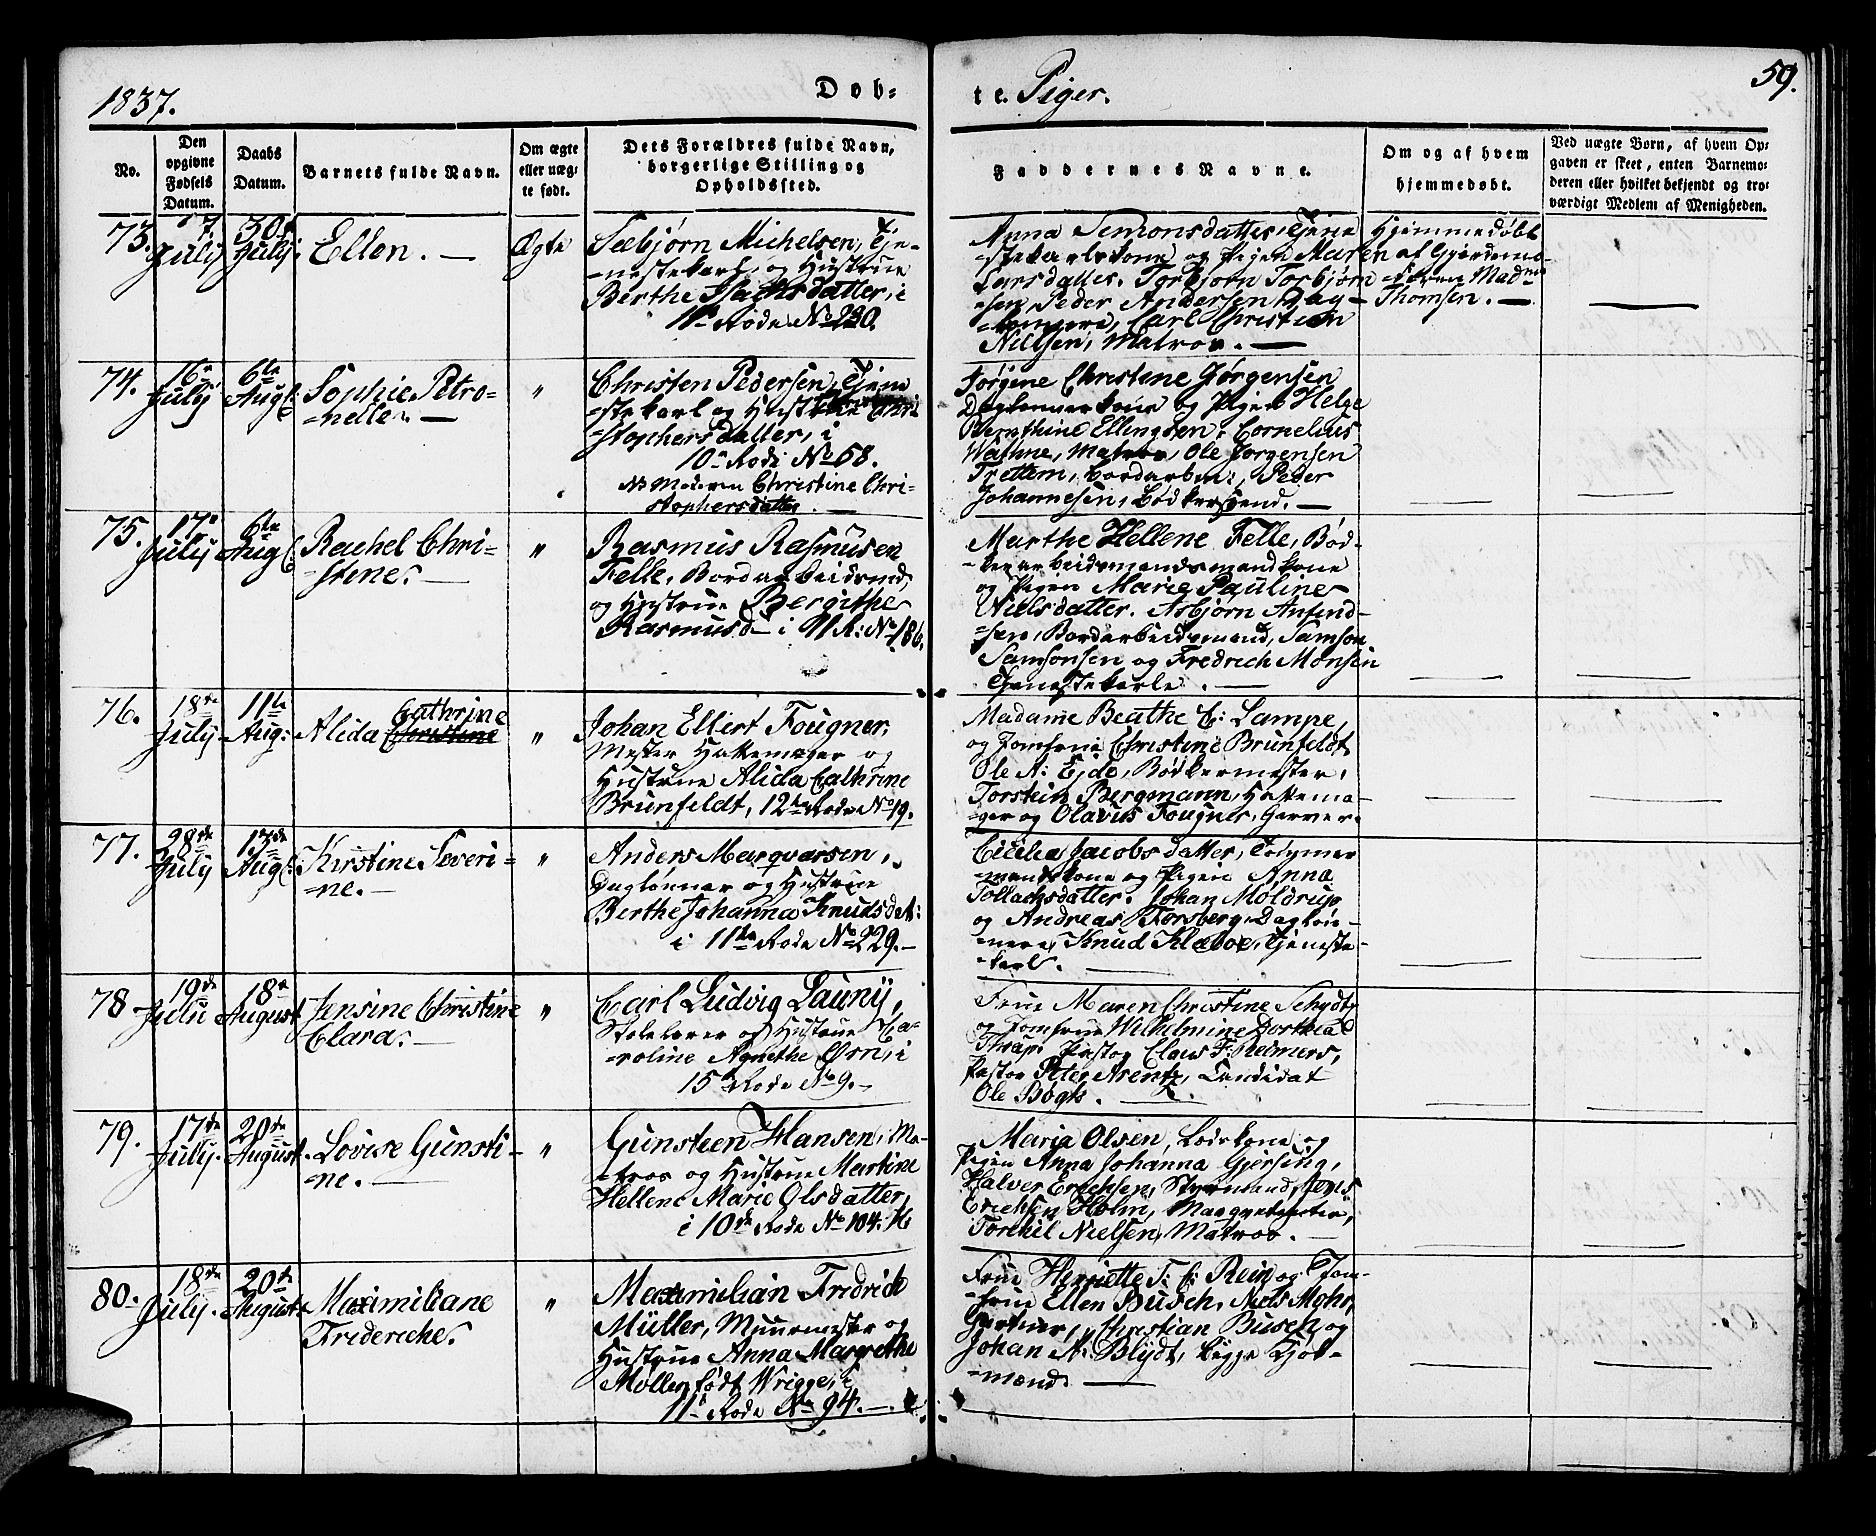 1837.
Døb-
te Piger.
59.
No.
Den opgivne Fødsels Datum.
Daabs Datum.
Barnets fulde Navn.
Om ægte eller uæg-
te født.
Dets Forældres fulde Navn,
borgerlige Stilling og
Opholdssted.
Faddernes Navne.
Om og af hvem
hjemmedøbt.
Ved uægte Børn, af hvem Op-
gaven er skeet, enten Barnemo-
deren eller hvilket bekjendt og tro-
værdigt Medlem af Menigheden.
73.
7.
July
30te
July
Ellen. —
Ægte
Sæbjørn Michelsen, Tje-
-nestekarl, og Hustrue
Berthe Isachsdatter, i
11te Rode No 280.
Anna Simonsdatter, Tjene
-stekarlskone og Pigen Maren
Larsdatter. Torbjørn Torbjørn
-sen, Peder Andersen Dag-
-lønnere, Carl Christian
Nielsen, Matros. —
Hjemmedøbt
af Gjordemo-
-deren Madm
Thomsen. —
74.
16de
July
6te
Aug:
Sophie Petro-
-nelle. —
"
Christen Pedersen, Tjene
-stekarl og Hustrue Chri
-stophersdatter, i
10de Rode No 58.
NB Moderen Christine Chri-
stophersdatter. —
Jørgine Christine Jørgensen
Daglønnerkone og Pigen Helge
Bernthine Ellingsen. Cornelius
Wathne, Matros, Ole Jørgensen
Trettem, Bordarbm:, Peder
Johannesen, Bødkersvend. —
75.
17de
July
6te
Aug:
Rachel Chri-
-stine. —
"
Rasmus Rasmusen
Felle, Bordarbeidsmd,
og Hustrue Bergithe
Rasmusd— i 11 R: No 186.
Marthe Hellene Felle, Bød-
-kerarbeidsmandskone
og Pigen Marie Pauline
Nielsdatter. Asbjørn Anfind-
-sen, Bordarbeidsmand, Samson
Samsonsen og Fredrich Monsen
Tjenestekarle. —
76.
18de
July
11te
Aug:
Cathrine
Alida Christine
"
Johan Ellert Fougner,
Mester Hattemager og
Hustrue Alida Cathrine
Brunfeldt, 12te Rode No 19.
Madame Beathe C: Lampe,
og Jomfrue Christine Brunfeldt
Ole A: Ejde, Bødkermester,
Torstein Bergmann, Hattema-
-ger og Olavus Fougner, Garver.
77.
28de
July
13de
Aug:
Kirstine Severi-
-ne. —
"
Anders Marqvarsen,
Daglønner og Hustrue
Berthe Johanna Knudsdat:
i 11te Rode No 229. —
Cicilia Jacobsdatter,
-mandskone og Pigen Anna
Tollachsdatter. Johan Moldrup
og Andreas Forsberg, Dagløn-
-nere, Knud Kleboe, Tjeneste-
-karl. —
78
19de
July
18de
August
Jensine Christine
Clara. —
"
Carl Ludvig Launy,
Skolelærer og Hustrue Ca-
-roline Agnethe Ørn, i
15de Rode No 9. —
Frue Maren Christine Schydtz
og Jomfrue Wilhelmine Dorthea
Thrap. Pastor Claus F: Reimers,
Pastor Peter Arentz, Candidat
Ole Bøgh. —
79.
17de
July.
20de
August
Lovise Gunsti-
-ne. —
"
Gunsteen Hansen, Ma-
-tros og Hustrue Martine
Hellene Marie Olsdatter,
i 10de Rode No 104.
Maria Olsen, Lodskone og
Pigen Anna Johanna Gjersing,
Halver Erichsen, Styrmand, Jens
Erichsen Holm,
Torchil Nielsen, Matros. —
80.
18de
July.
20de
August
Maximiliane
Friderické.
"
Maximilian Fridrich
Müller, Muurmester og
Hustrue Anna Margrethe
Møller født Wrigge, i
11te Rode No 94. —
Frue Henriette T: C: Rein og Jom-
-frue Ellen Busch, Niels Mohr,
Gartner, Christian Busch og
Johan A: Blydt, begge Kjøb-
-mænd. —